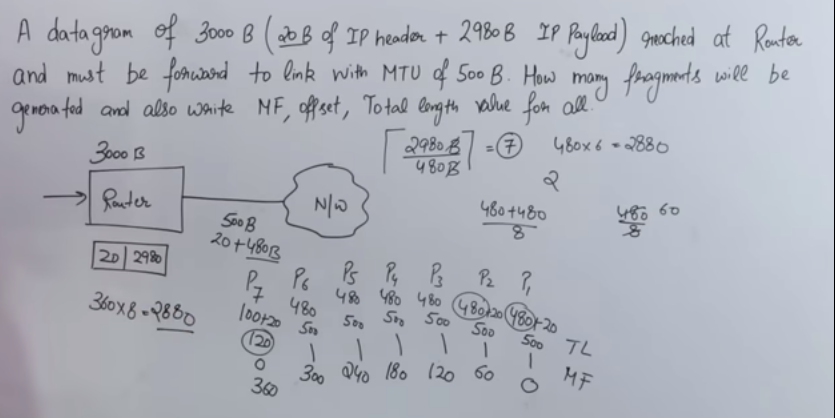 A datagram of 3000 B (20 B of IP header + 2980 B IP Payload) reached at Router
and must be forward to link with MTU of 500 B. How many fragments will be
generated and also write MF, offset, Total length value for all.
3000 B
⌈2980B/480B⌉ = 7 480x6 = 2880
2
Router
N/W
480+480/8 480/8 60
500B
20+480B
20 | 2980
360x8 = 2880
P7 P6 P5 P4 P3 P2 P1
100+20 480 480 480 480 480+20 480+20
120 500 500 500 500 500 500 TL
0 1 1 1 1 1 1 MF
360 300 240 180 120 60 0